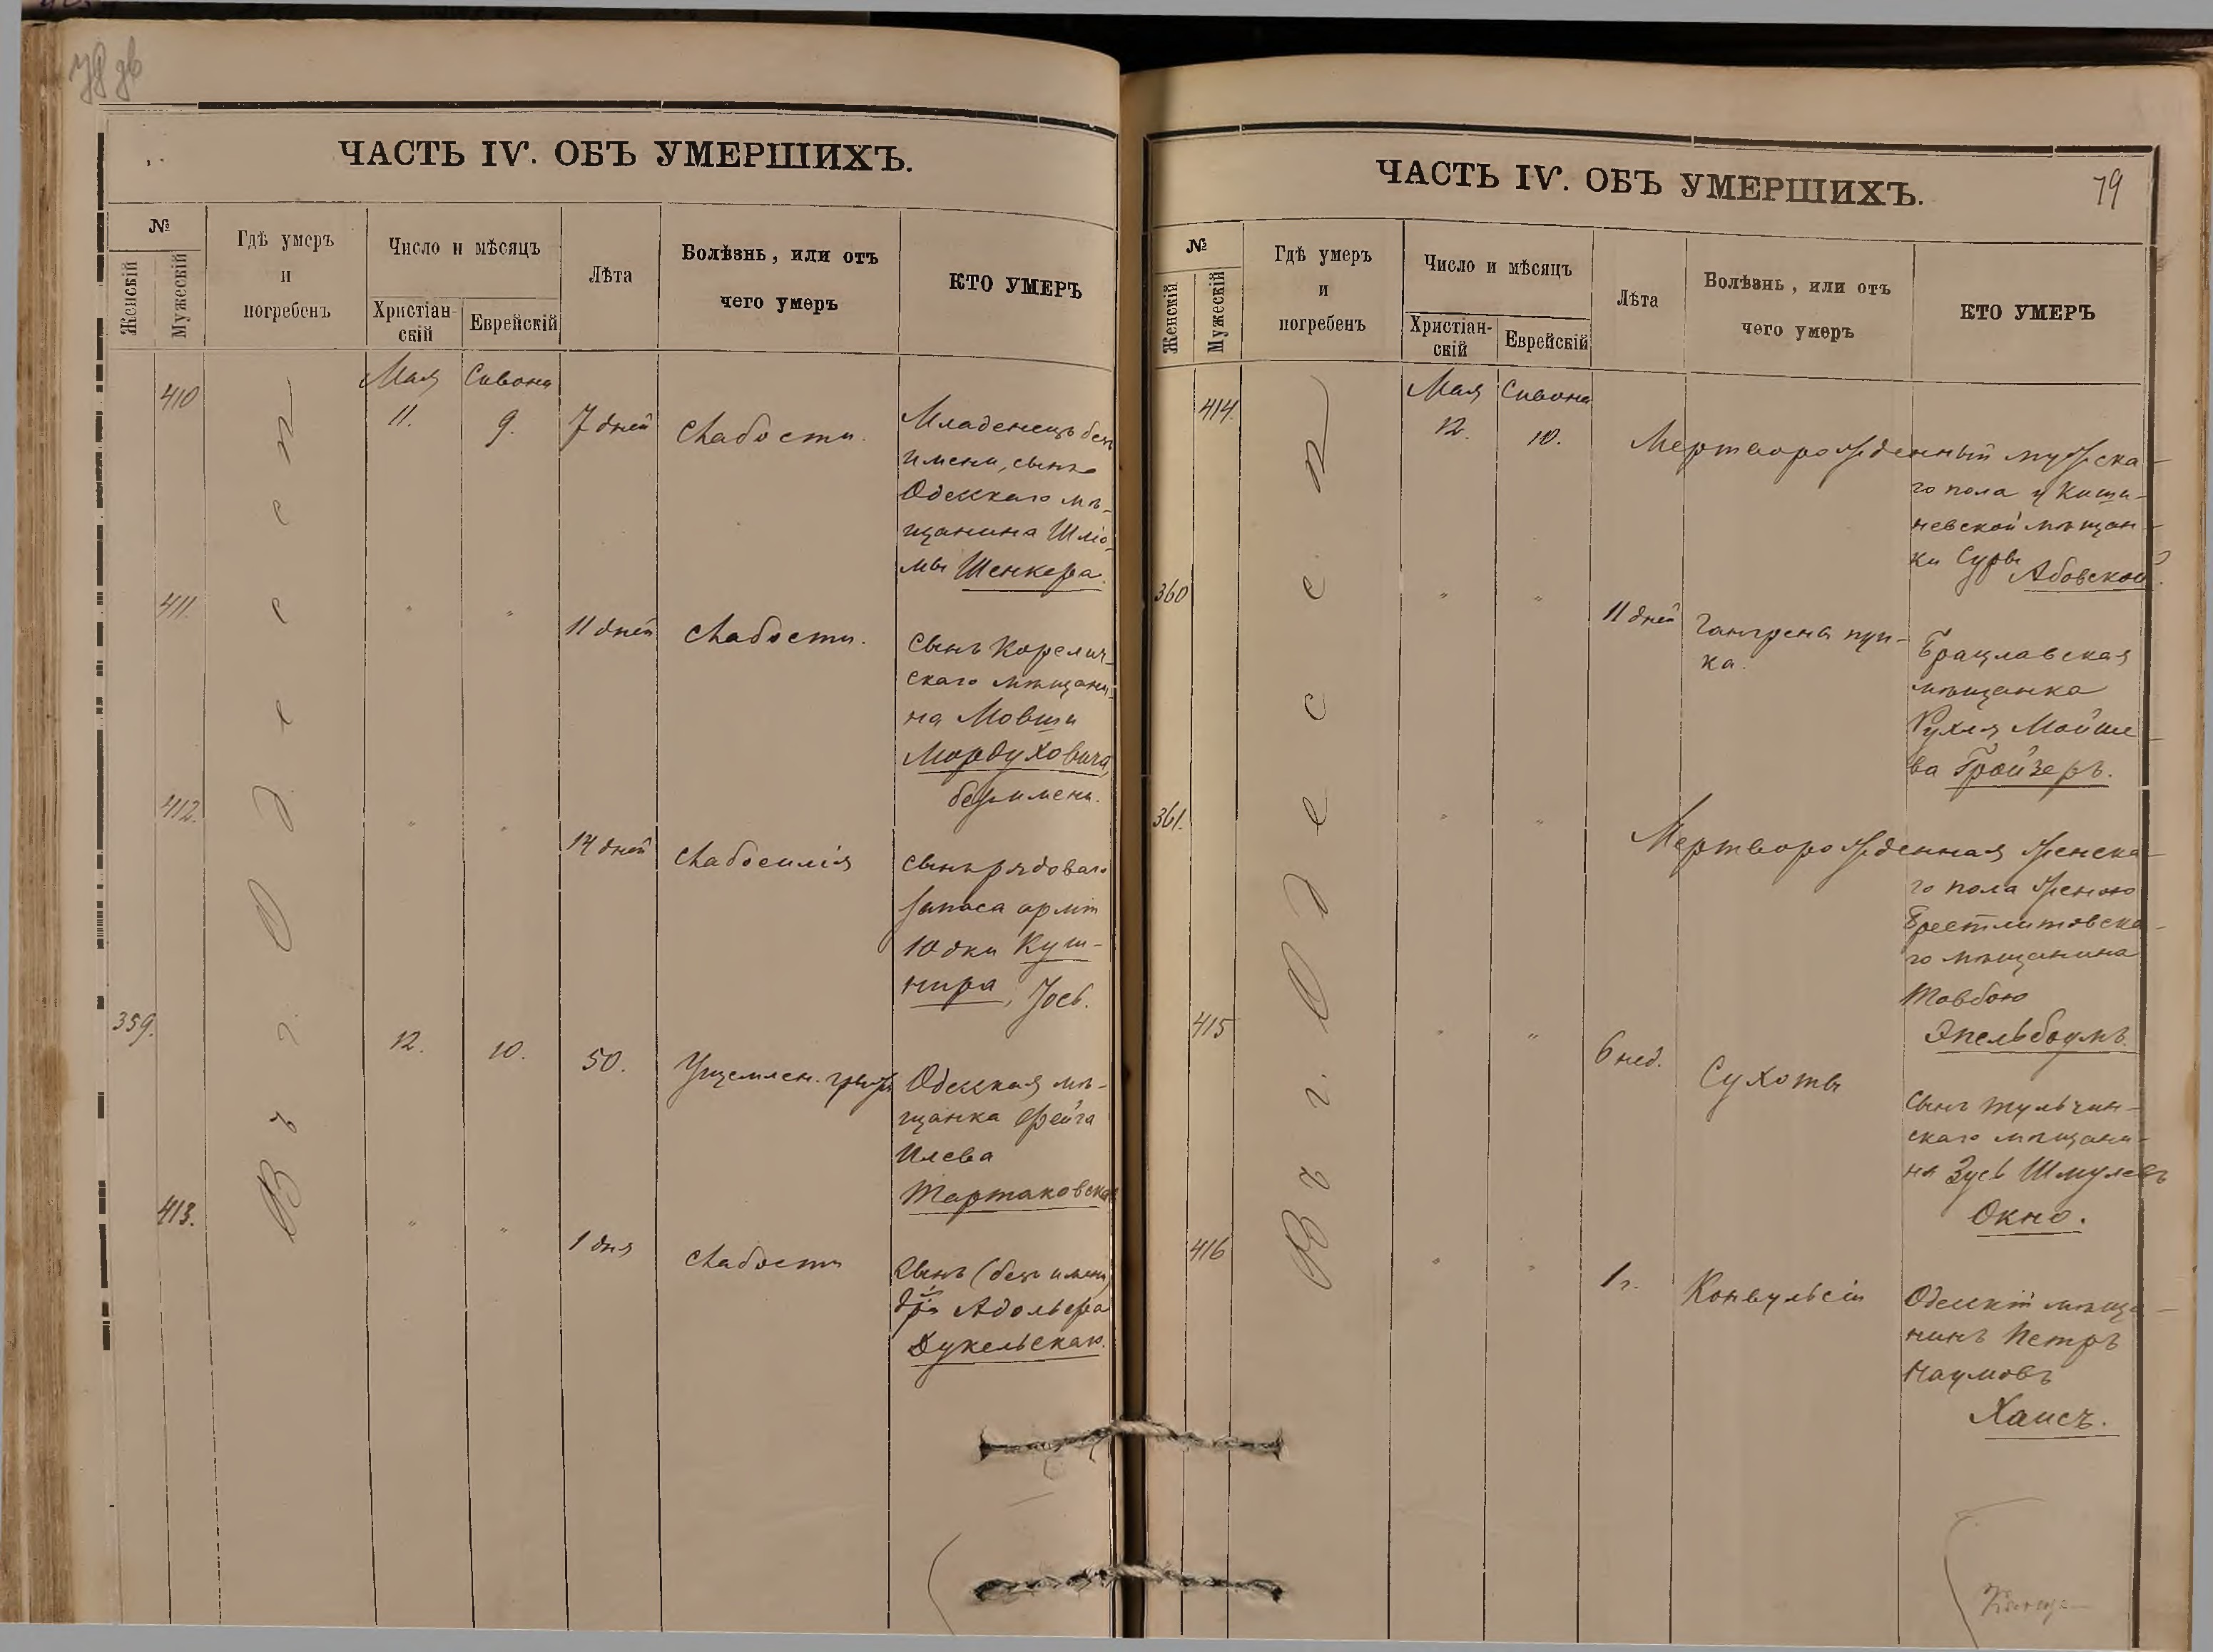 ЧАСТЬ IV. ОБЪ УМЕРШИХЪ.
№
Женскій
Мужескій
Гдѣ умеръ
и
погребенъ
Число и мѣсяцъ
Христіан-
скій
Еврейскій
Лѣта
Болѣзнь, или отъ
чего умеръ
КТО УМЕРЪ
Въ г. Одессѣ
Мая Сивона
410 11. 9. 7 дней Слабости. Младенецъ безъ
имени, сынъ
Одесскаго мѣ-
щанина Шліо-
мы Шенкера.
411. " " 11 дней Слабости. Сынъ Корелич-
скаго мѣщани-
на Мовши
Мордуховича,
безъ имени.
412. " " 14 дней Слабосилія Сынъ рядоваго
запаса арміи
Юдки Куш-
нира, Іось.
359. 12. 10. 50. Ущемлен. грыжи Одесская мѣ-
щанка Фейга
Илева
Тартаковская
413. " " 1 дня Слабости Сынъ (безъ имени)
Адольфа
Дукельскаго.
ЧАСТЬ IV. ОБЪ УМЕРШИХЪ.
79
№
Женскій
Мужескій
Гдѣ умеръ
и
погребенъ
Число и мѣсяцъ
Христіан-
скій
Еврейскій
Лѣта
Болѣзнь, или отъ
чего умеръ
КТО УМЕРЪ
Въ г. Одессѣ
Мая Сивона
414. 12. 10. Мертворожденный мужска-
го пола у Киши-
невской мѣщан-
ки Суры Абовской.
360 " " 11 дней Гангрена пуп-
ка.
Брацлавская
мѣщанка
Рухля Мойше-
ва Гройзеръ.
361. " " Мертворожденная женска-
го пола женою
Брестлитовска-
го мѣщанина
Товбою
Эпельбоумъ.
415 " " 6 нед. Сухоты Сынъ Тульчин-
скаго мѣщани-
на Зусь Шмулевъ
Окно.
416 " " 1 г. Конвульсіи Одесскій мѣща-
нинъ Петръ
Наумовъ
Хаисъ.